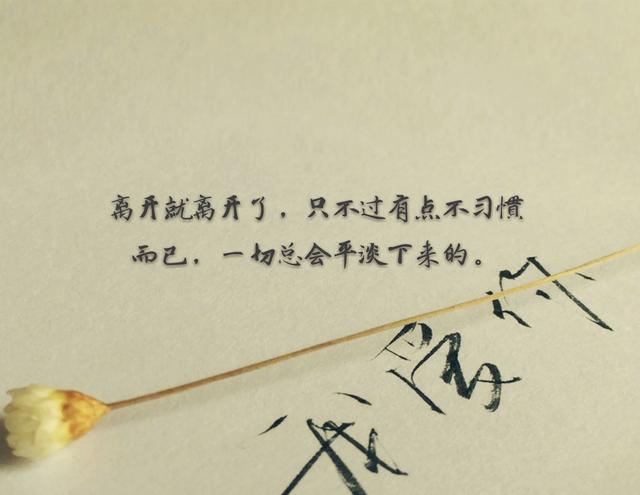 离开就离开了，只不过有点不习慣
而已，一切总会平淡下来的。